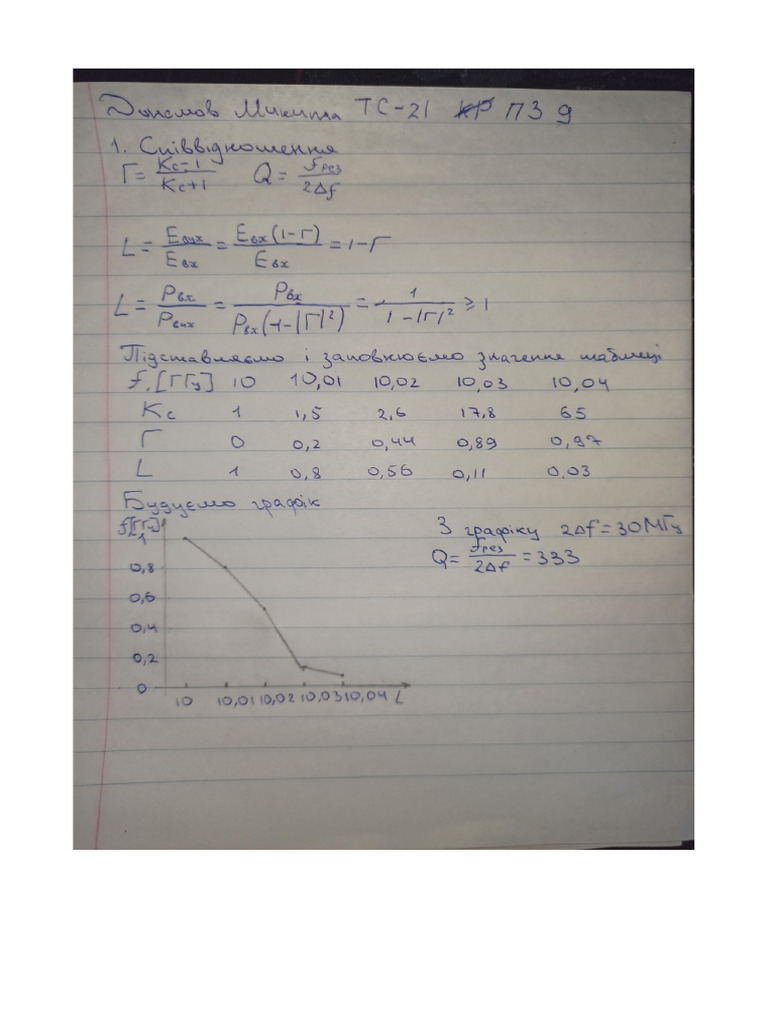 Микита ТС-21 КР ПЗ 9
1. Співвідношення
Г = (Kc-1)/(Kc+1) Q = fрез/2Δf
L = Eвих/Eвх = Eвх(1-Г)/Eвх = 1-Г
L = Pвх/Pвих = Pвх/Pвх(1-|Г|²) = 1/(1-|Г|²) ≥ 1
Підставляємо і заповнюємо значення таблиці
f, [ГГц] 10 10,01 10,02 10,03 10,04
Kc 1 1,5 2,6 17,8 65
Г 0 0,2 0,44 0,89 0,97
L 1 0,8 0,56 0,11 0,03
Будуємо графік
f[ГГц]
1
0,8
0,6
0,4
0,2
0
10 10,01 10,02 10,03 10,04 L
З графіку 2Δf = 30МГц
Q = fрез/2Δf = 333